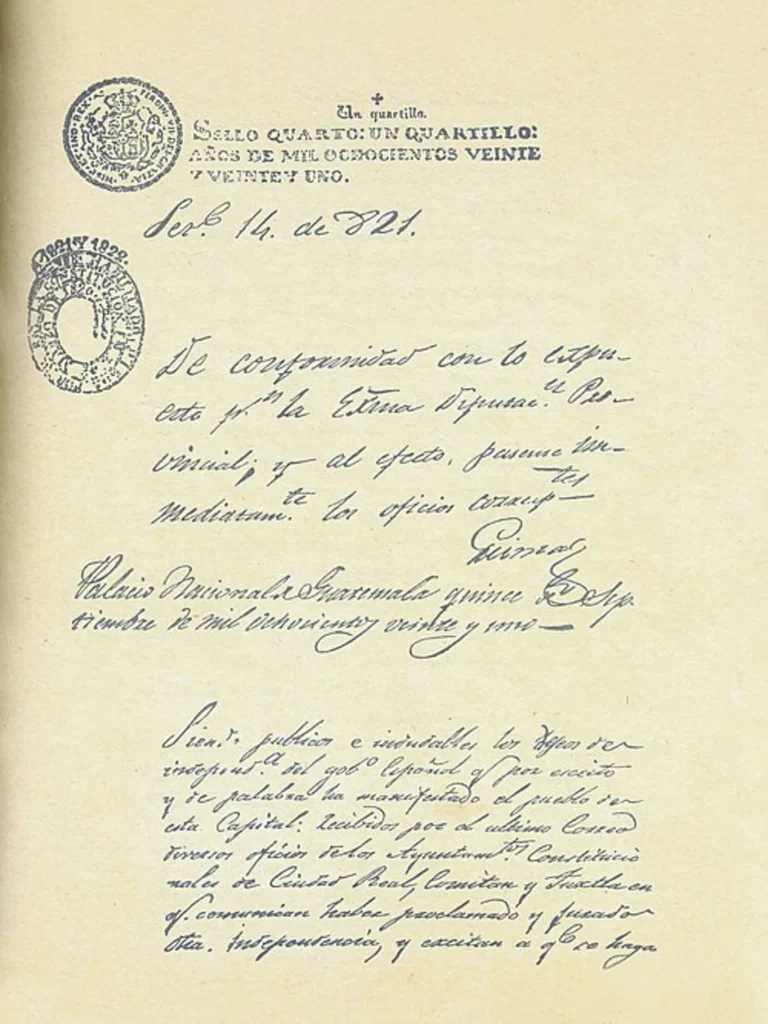 Un quartillo.
SELLO QUARTO: UN QUARTILLO:
AÑOS DE MIL OCHOCIENTOS VEINTE
Y VEINTE Y UNO.
14. de 821.
1821 Y 1822.
De conformidad con lo expu-
esto p.r la Exma Diputac.n Pro-
vincial; y al efecto, pasense in-
mediatam.te los oficios corresp-tes
Palacio Nacional de Guatemala quince de Sep-
tiembre de mil ochocientos veinte y uno—
Siendo publicos e indudables los deseos de
independ.a del gob.o Español q.e por escrito
y de palabra ha manifestado el pueblo de
esta Capital: recibidos por el ultimo Correo
diversos oficios de los Ayuntam.tos Constitucio
nales de Ciudad Real, Comitan y Tuxtla en
q.e comunican haber proclamado y jurado
dha. independencia, y excitan a q.e se haga